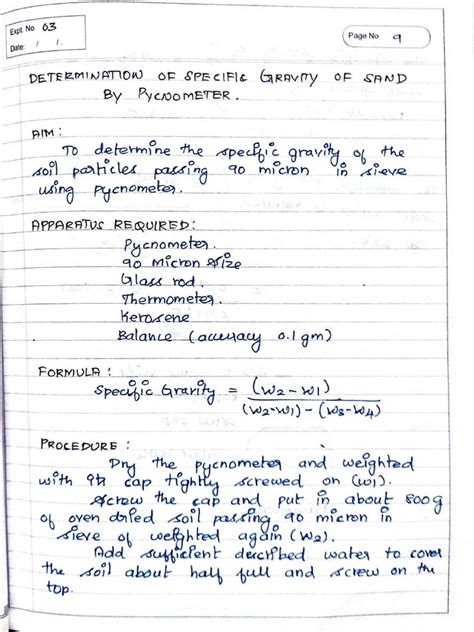 Expt. No. 03
Date: / /.
Page No. 9
DETERMINATION OF SPECIFIC GRAVITY OF SAND
BY PYCNOMETER.
AIM:
To determine the specific gravity of the
soil particles passing 90 micron in sieve
using pycnometer.
APPARATUS REQUIRED:
Pycnometer.
90 Micron Size
Glass rod.
Thermometer.
Kerosene
Balance (accuracy 0.1gm)
FORMULA:
Specific Gravity = (W2-W1)
(W2-W1) - (W3-W4)
PROCEDURE:
Dry the pycnometer and weighted
with its cap tightly screwed on (W1).
Screw the cap and put in about 800g
of oven dried soil passing 90 micron in
sieve of weighted again (W2).
Add sufficient described water to cover
the soil about half full and screw on the
top.